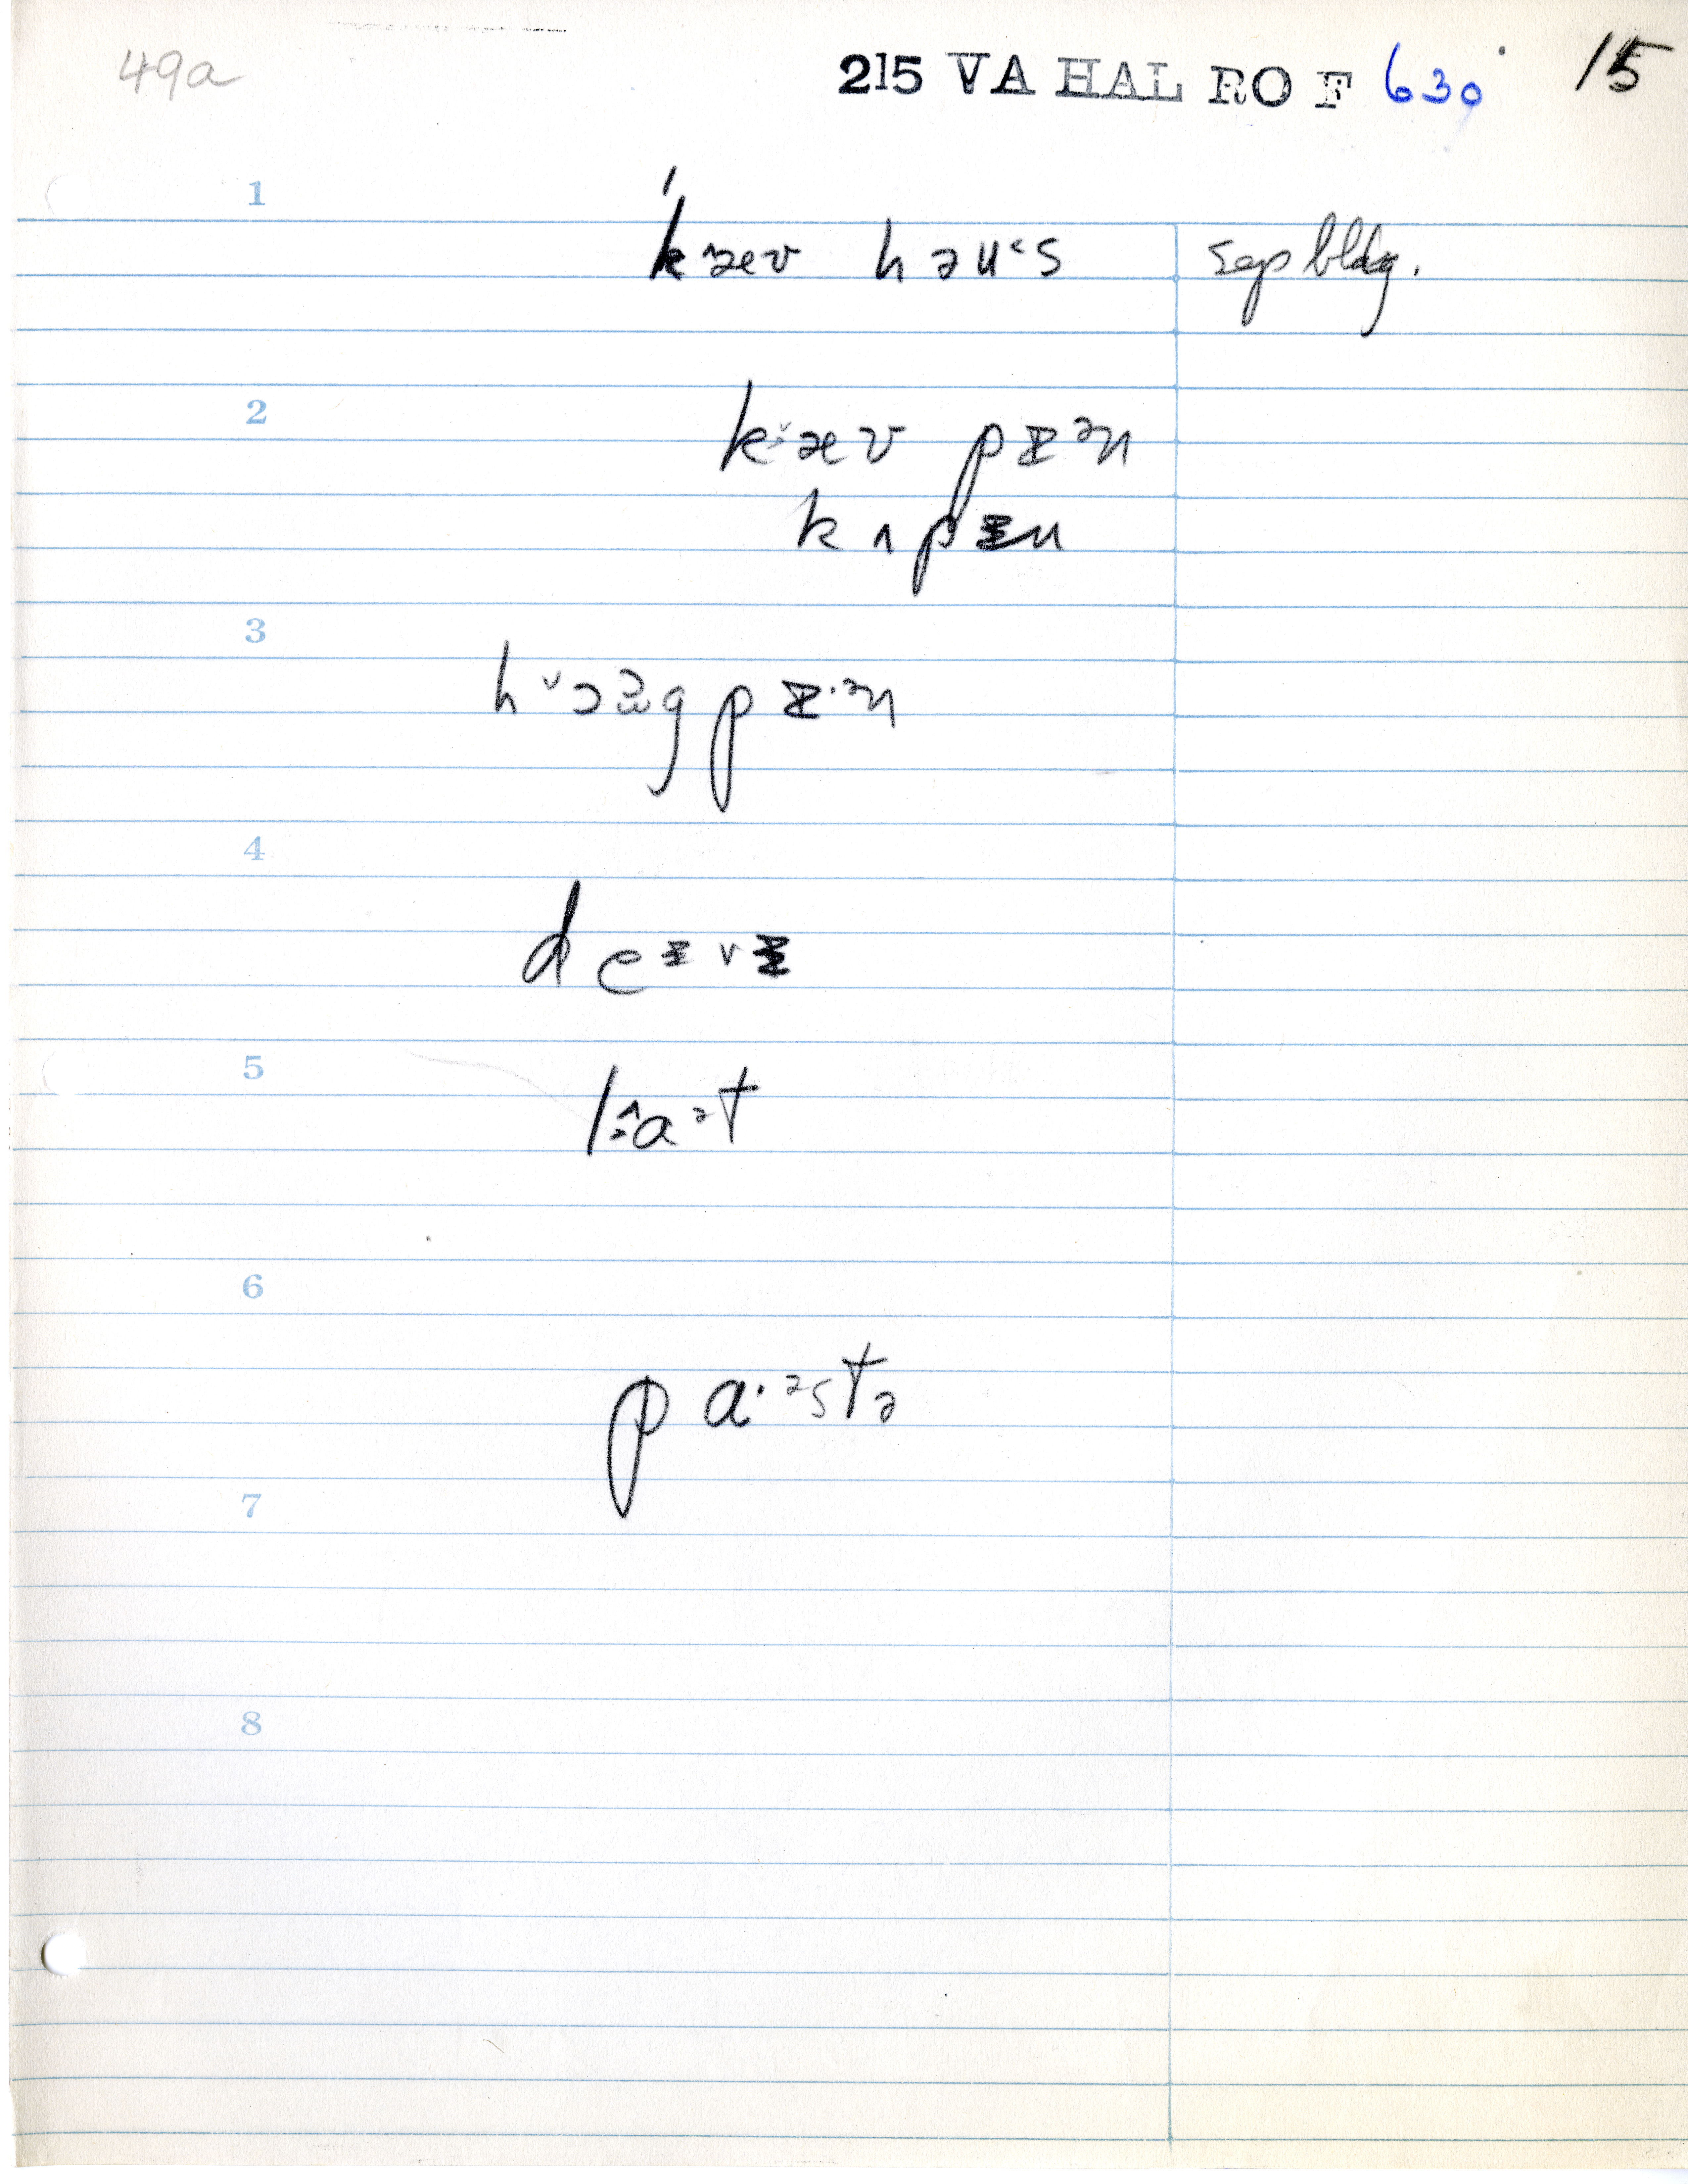 49a 215 VA HAL RO F 630 15
1
kæv həuˑs sep bldg.
2
kæv pɪᵊn
kʌpɪn
3
hɔg pɪˑᵊn
4
deɪvɪ
5
laᵊt
6
paˑᵊstə
7
8